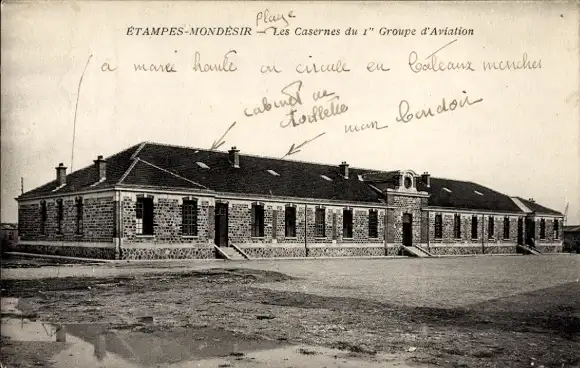 Plage
ÉTAMPES-MONDÉSIR — Les Casernes du 1er Groupe d'Aviation
a marée haute on circule en bateaux mouches
cabinet de
toillette
mon Condoir